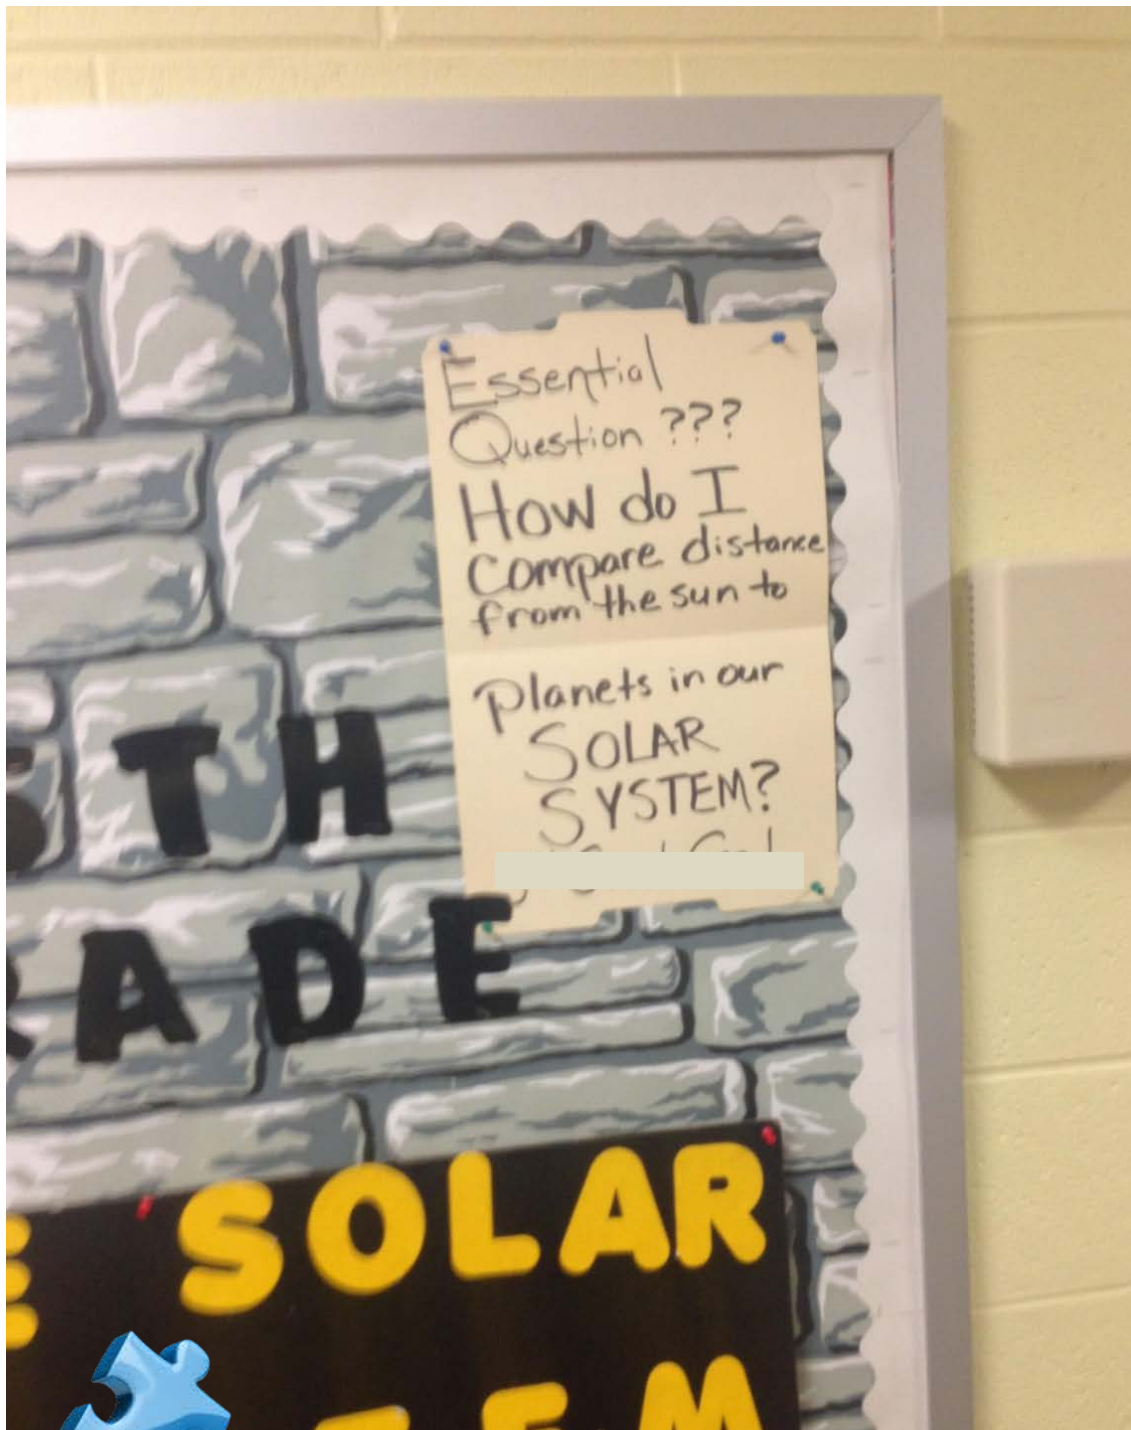 Essential
Question ???
How do I
compare distance
from the sun to
planets in our
SOLAR
SYSTEM?
TH
ADE
SOLAR
EM